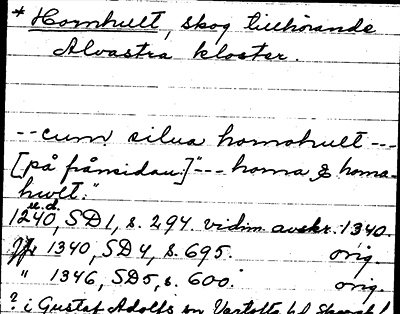 * Hornhult, skog tillhörande
Alvastra kloster.
-- cum silua hornohult ---
[på frånsidan:] "--- horna & horna-
hwlt."
u. d.
1240, SD1, s. 294. vidim. avskr. 1340.
Jfr 1340, SD4, s. 695. orig.
" 1346, SD5, s. 600. orig.
? i Gustaf Adolfs sn Vartofta hd